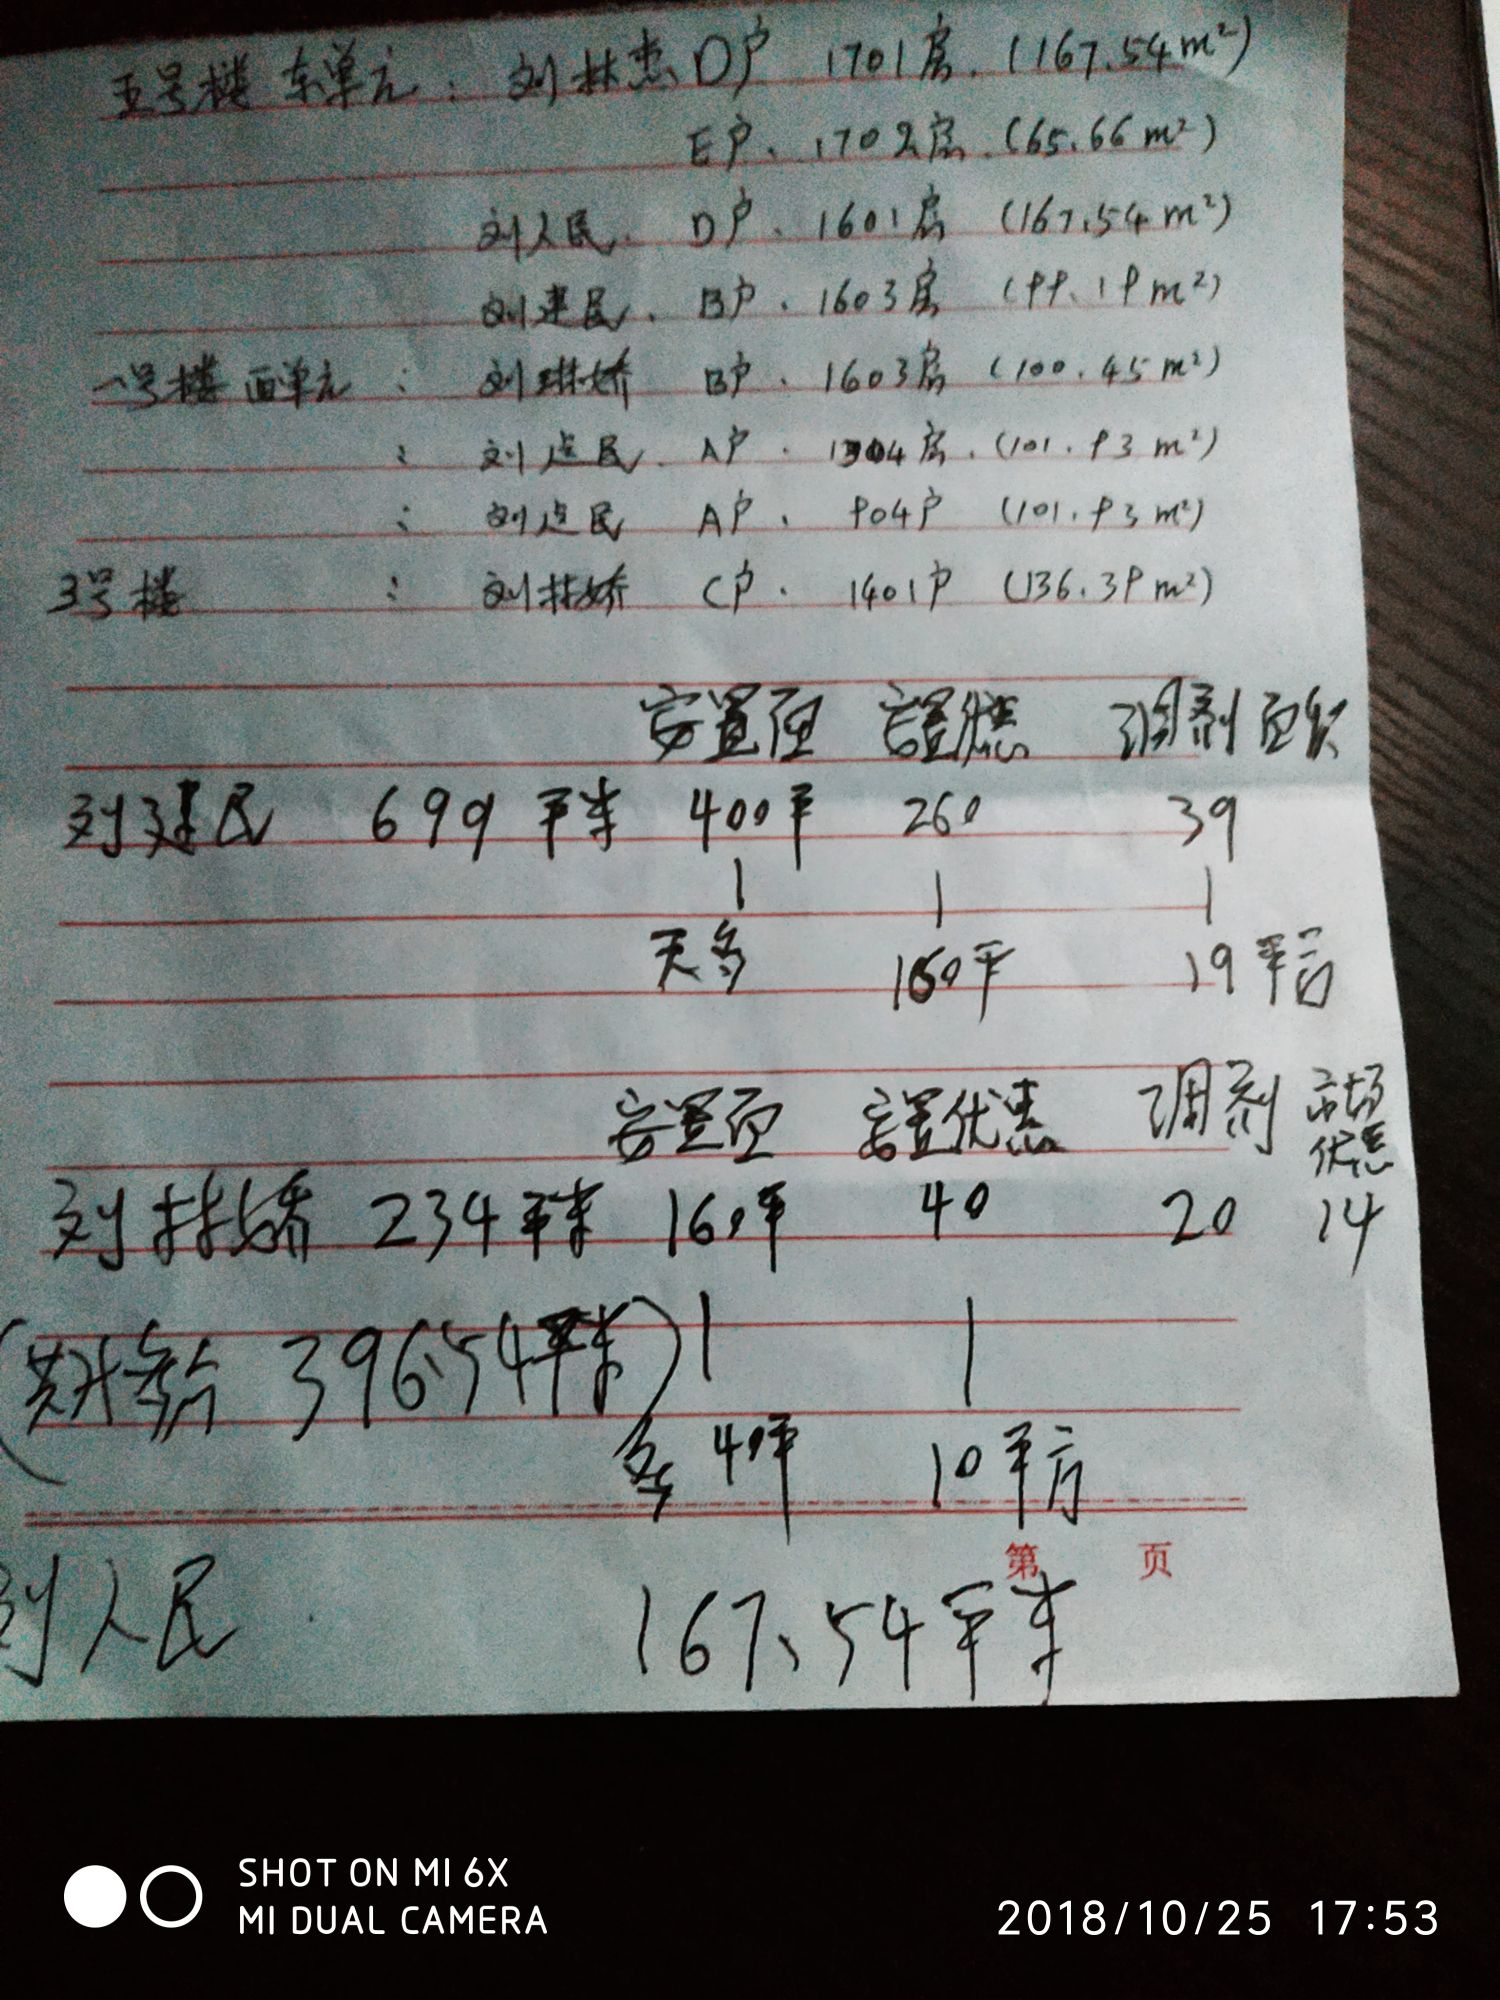 五号楼 东单元： 刘林杰 D户 1701房.（167.54m²）
E户. 1702房.（65.66m²）
刘人民. D户. 1601房（167.54m²）
刘建民. B户. 1603房（99.19m²）
一号楼 西单元： 刘林娇 B户. 1603房（100.45m²）
： 刘建民. A户. 1304房.（101.93m²）
： 刘建民 A户. 904户（101.93m²）
3号楼 ： 刘林娇 C户. 1401户（136.39m²）
安置面 安置优惠 调剂面积
刘建民 699平米 400平 260 39
天多 160平 19平方
安置面 安置优惠 调剂 市场优惠
刘林娇 234平米 160平 40 20 14
396.54平米）
多40平 10平方
第 页
刘人民. 167.54平米
SHOT ON MI 6X
MI DUAL CAMERA
2018/10/25 17:53